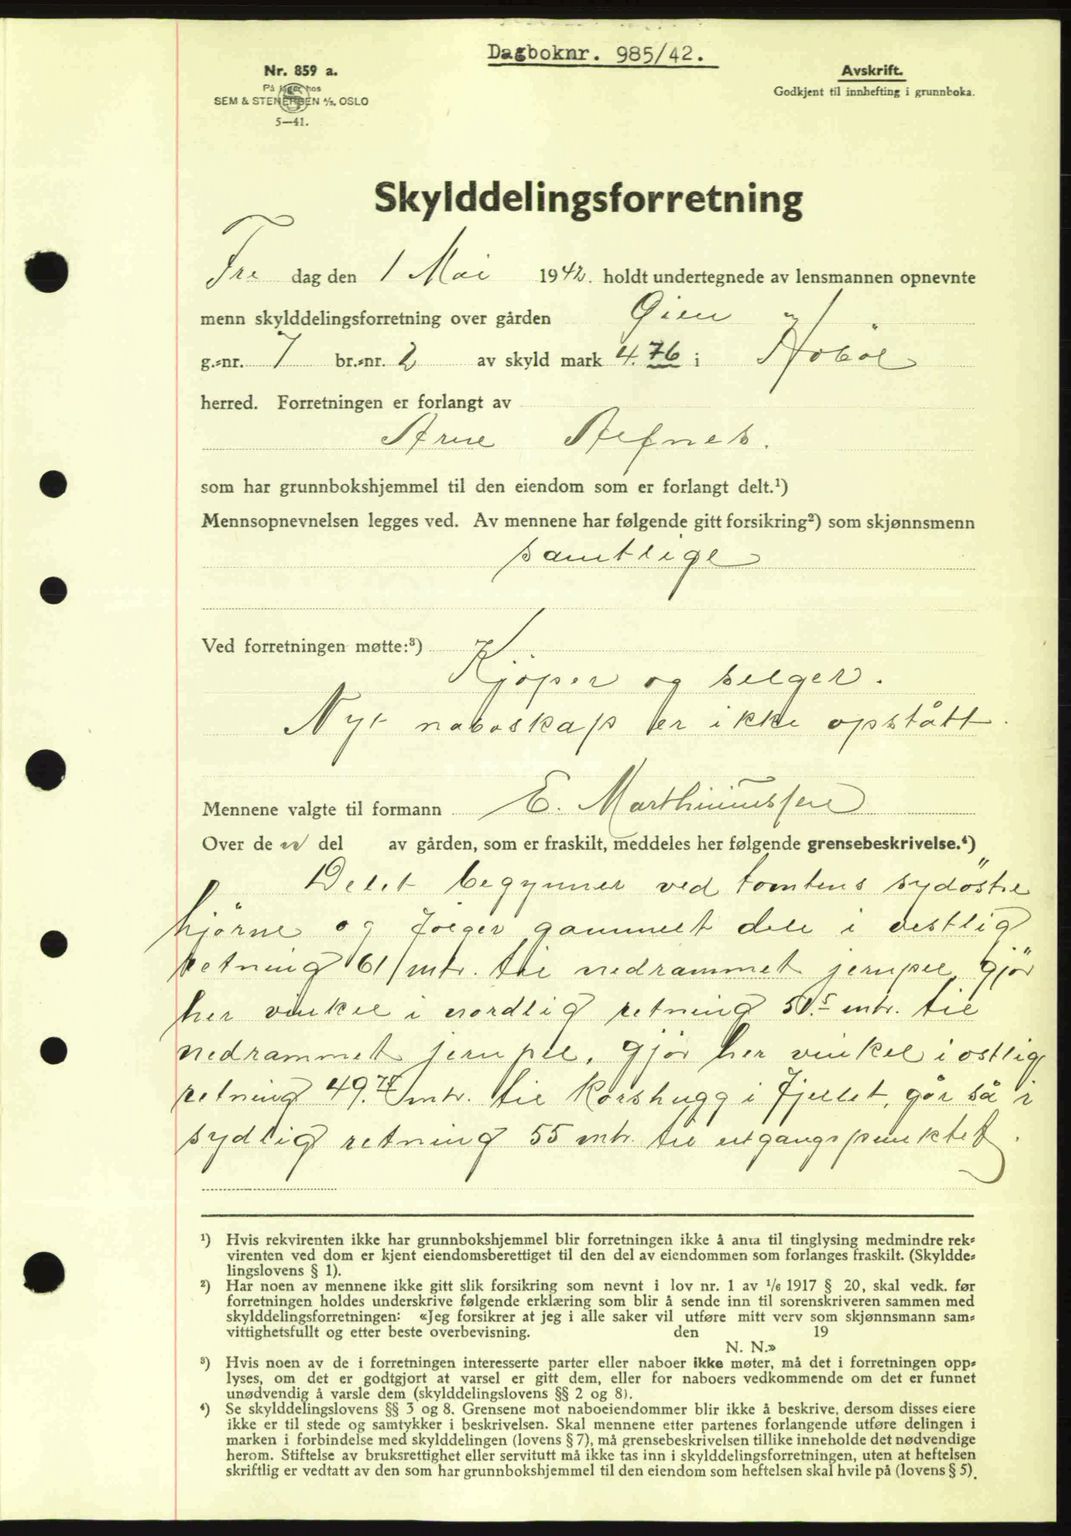 Dagboknr. 985/42.
Nr. 859 a.
På lager hos
SEM & STENERSEN A/S, OSLO
5—41.
Avskrift.
Godkjent til innhefting i grunnboka.
Skylddelingsforretning
Fre dag den 1 Mai 1942. holdt undertegnede av lensmannen opnevnte
menn skylddelingsforretning over gården Gien
g.-nr. 7 br.-nr. 2 av skyld mark 4.76 i Hobøl
herred. Forretningen er forlangt av
Arne Refnes.
som har grunnbokshjemmel til den eiendom som er forlangt delt.¹)
Mennsopnevnelsen legges ved. Av mennene har følgende gitt forsikring²) som skjønnsmenn
samtlige
Ved forretningen møtte:³)
Kjöper og selger.
Nyt naboskap er ikke opstått.
Mennene valgte til formann E. Marthiniussen
Over de n del av gården, som er fraskilt, meddeles her følgende grensebeskrivelse.⁴)
Delet begynner ved tomtens sydöstre
hjörne og fölger gammelt dele i vestlig
retning 61 mtr. til nedrammet jernpel, gjör
her vinkel i nordlig retning 51.5 mtr. til
nedrammet jernpel, gjör her vinkel i ostlig
retning 49.75 mtr. til korshugg i fjellet, går så i
sydlig retning 55 mtr. til utgangspunktet.
¹) Hvis rekvirenten ikke har grunnbokshjemmel blir forretningen ikke å anta til tinglysing medmindre rek-
virenten ved dom er kjent eiendomsberettiget til den del av eiendommen som forlanges fraskilt. (Skyldde-
lingslovens § 1).
²) Har noen av mennene ikke gitt slik forsikring som nevnt i lov nr. 1 av 1/6 1917 § 20, skal vedk. før
forretningen holdes underskrive følgende erklæring som blir å sende inn til sorenskriveren sammen med
skylddelingsforretningen: «Jeg forsikrer at jeg i alle saker vil utføre mitt verv som skjønnsmann sam-
vittighetsfullt og etter beste overbevisning. den 19
N. N.»
³) Hvis noen av de i forretningen interesserte parter eller naboer ikke møter, må det i forretningen opp-
lyses, om det er godtgjort at varsel er gitt dem, eller for naboers vedkommende om det er funnet
unødvendig å varsle dem (skylddelingslovens §§ 2 og 8).
⁴) Se skylddelingslovens §§ 3 og 8. Grensene mot naboeiendommer blir ikke å beskrive, dersom disses eiere
ikke er til stede og samtykker i beskrivelsen. Skal mennene etter partenes forlangende utføre delingen i
marken i forbindelse med skylddelingen (lovens § 7), må grensebeskrivelsen tillike inneholde det nødvendige
herom. Stiftelse av bruksrettighet eller servitutt må ikke tas inn i skylddelingsforretningen, uten at heftelsen
skriftlig er vedtatt av den som har grunnbokshjemmel til den eiendom som heftelsen skal hvile på (lovens § 5).